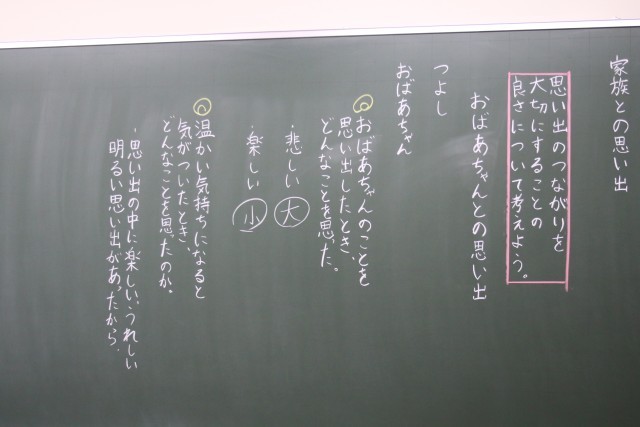 家族との思い出
思い出のつながりを
大切にすることの
良さについて考えよう。
おばあちゃんとの思い出
つよし
おばあちゃん
おばあちゃんのことを
思い出したとき、
どんなことを思った。
・悲しい 大
・楽しい 小
温かい気持ちになると
気がついたとき、
どんなことを思ったのか。
・思い出の中に楽しい、うれしい
明るい思い出があったから、